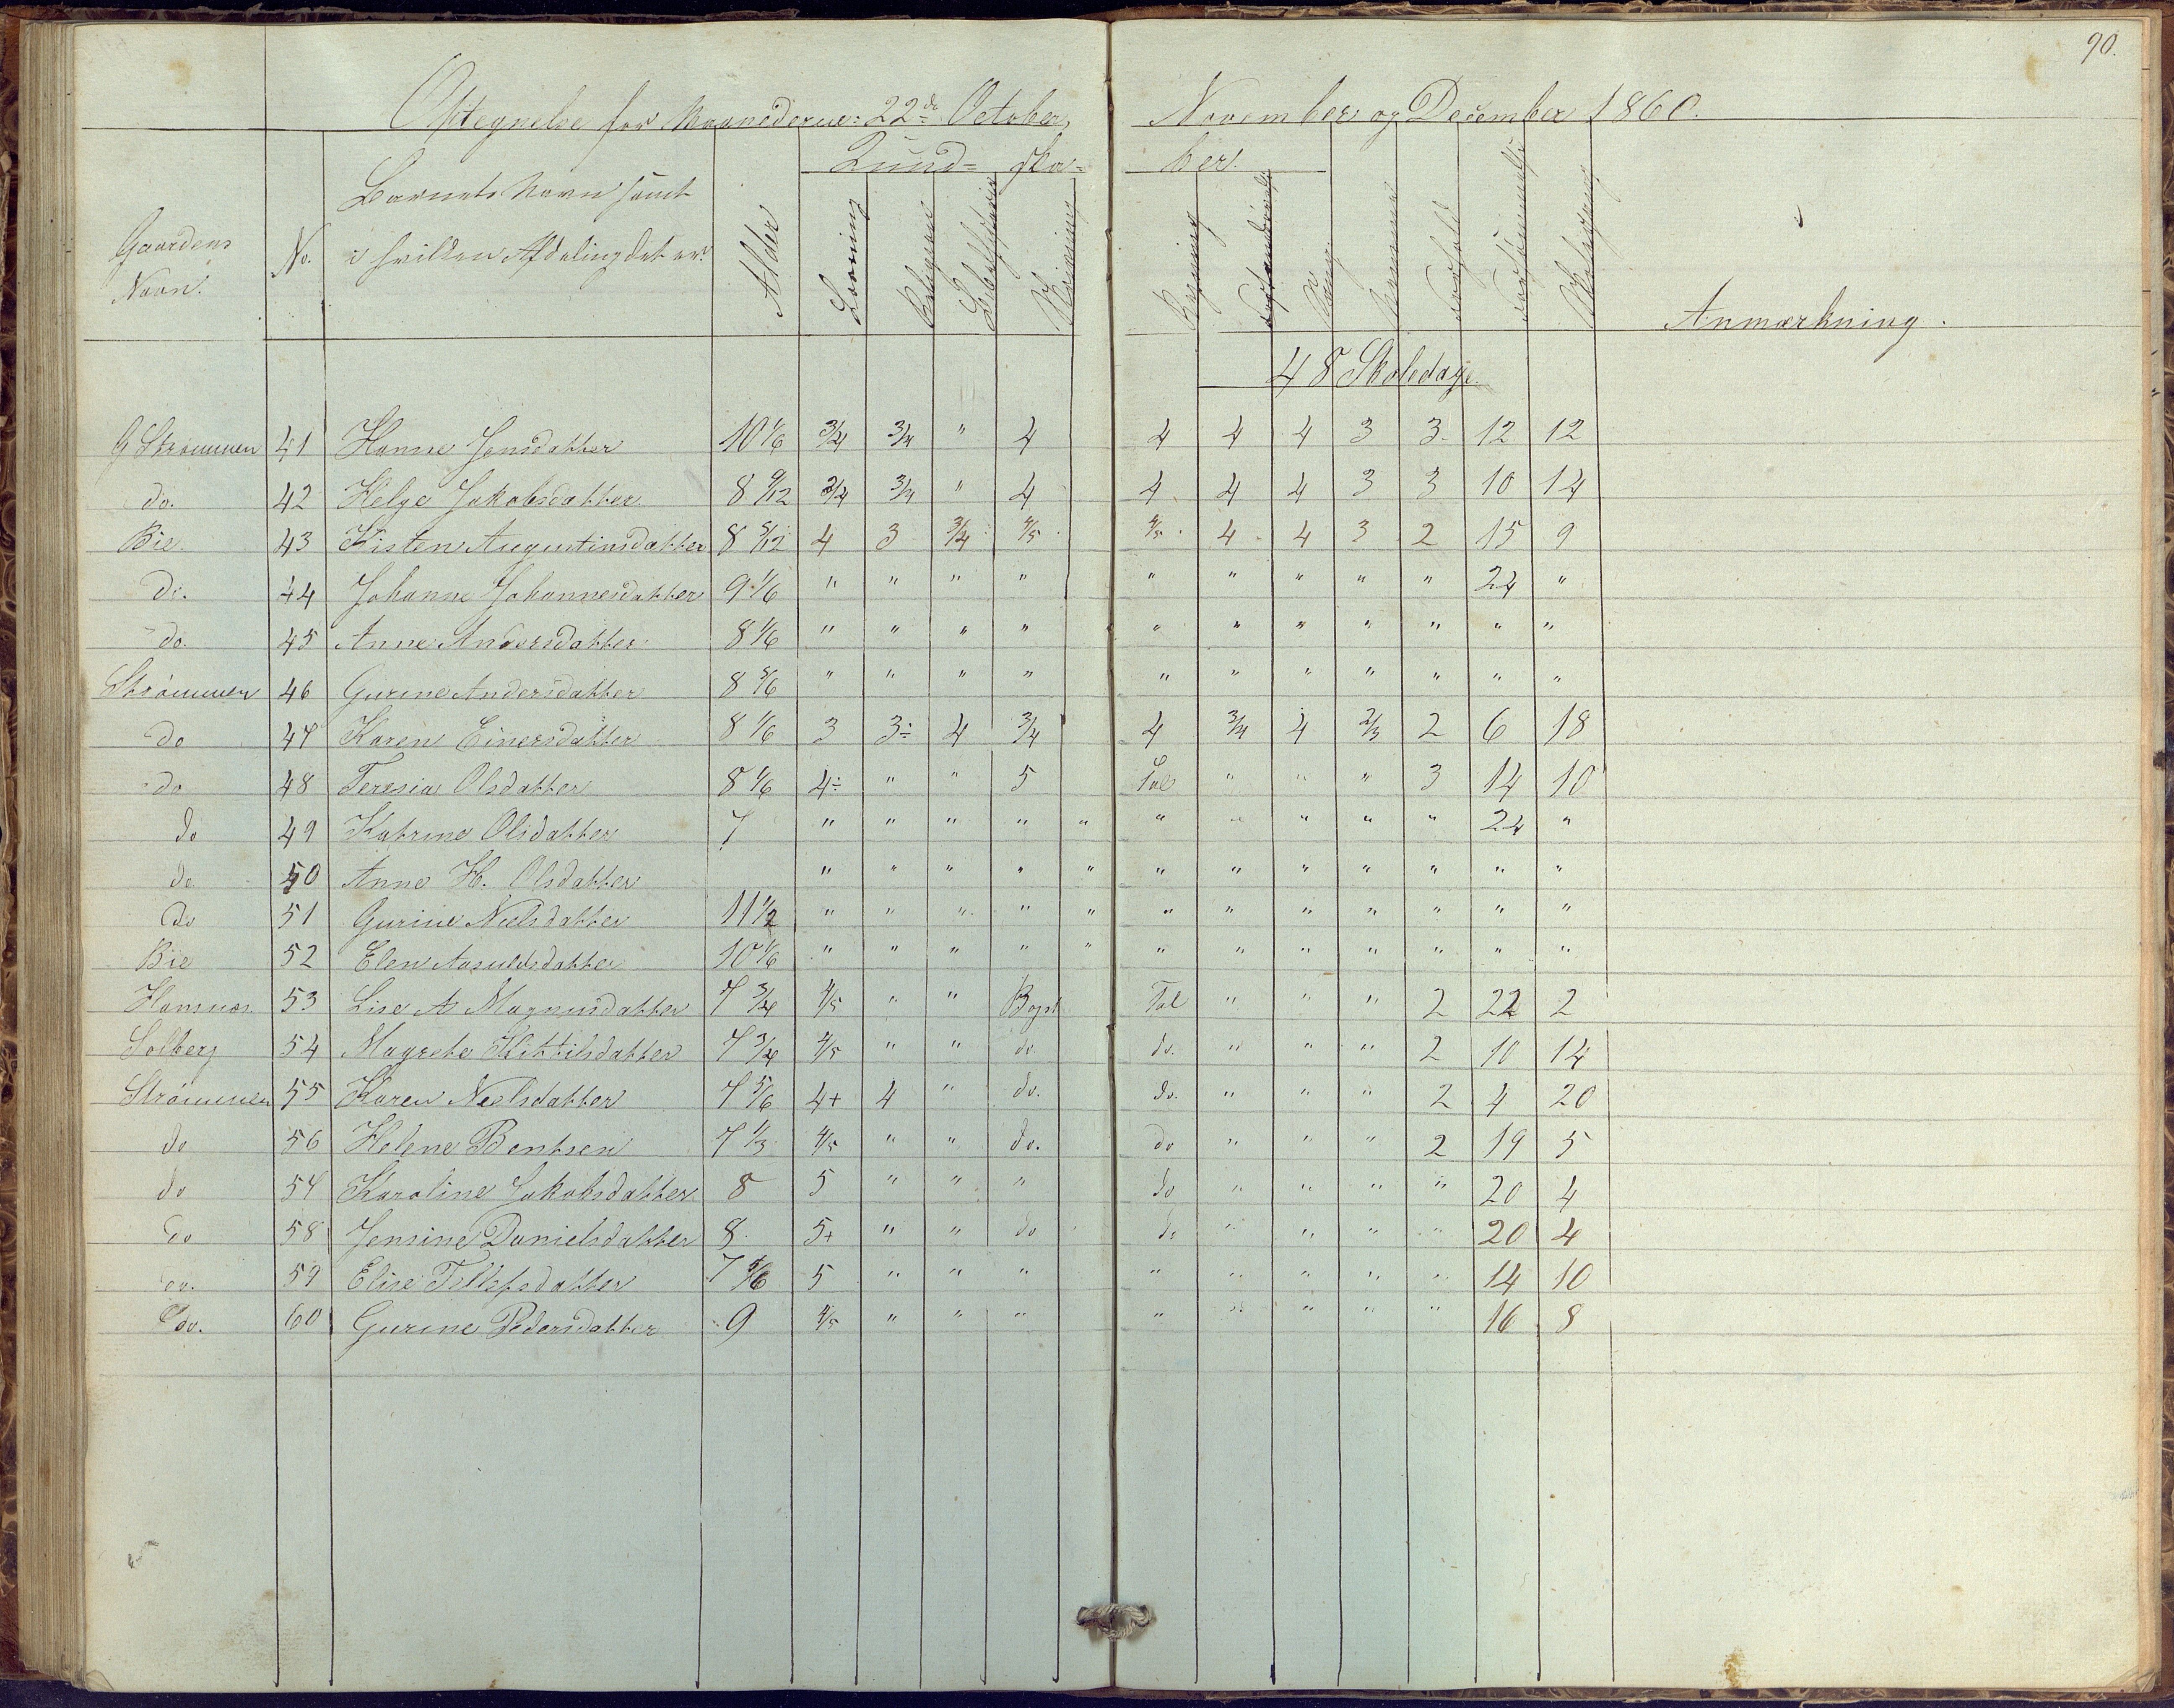 90.
Optegnelse for Maanederne: 22de October, November og December 1860.
Kund- ska- ber.
Gaardens Navn.
No.
Barnets Navn samt i hvilken Afdeling det er.
Alder
Læsning
Religion
Skrivning
Regning
Sang.
Forhold
Anmærkning.
48 Skoledage.
G Strømmen 41 Hanne Jensdatter 10 1/6 3/4 3/4 " 4 4 4 4 3 3 12 12
do. 42 Helge Jakobsdatter 8 9/12 3/4 3/4 " 4 4 4 4 3 3 10 14
Bie 43 Kisten Augustinsdatter 8 5/12 4 3 3/4 4/5 4/5 4 4 3 2 15 9
do. 44 Johanne Johannesdatter 9 1/6 " " " " " " " " " 24 "
do. 45 Anne Andersdatter 8 1/6 " " " " " " " " " " "
Strømmen 46 Gurine Andersdatter 8 5/6 " " " " " " " " " " "
do 47 Karen Einersdatter 8 1/6 3 3÷ 4 3/4 4 3/4 4 2/3 2 6 18
do 48 Teresia Olsdatter 8 1/6 4÷ " " 5 Tal " " " 3 14 10
do 49 Katrine Olsdatter 7 " " " " " " " " " " 24 "
do 50 Anne H. Olsdatter " " " " " " " " " " " "
do 51 Gurine Neelsdatter 11 1/2 " " " " " " " " " " " "
Bie 52 Elen Aasuldsdatter 10 1/6 " " " " " " " " " " " "
Hansnæs 53 Lise A Magnusdatter 7 3/4 4/5 " " Bogst Tal " " " 2 22 2
Solberg 54 Magrete Kittilsdatter 7 3/4 4/5 " " do. do. " " " 2 10 14
Strømmen 55 Karen Neelsdatter 7 5/6 4+ 4 " do. do. " " " 2 4 20
do 56 Helene Bentsen 7 1/3 4/5 " " do. do " " " 2 19 5
do 57 Karoline Jakobsdatter 8 5 " " " do " " " " 20 4
do 58 Jensine Danielsdatter 8 5+ " " do do " " " " 20 4
do. 59 Elise Tellefsdatter 7 5/6 5 " " " " " " " " 14 10
do. 60 Gurine Pedersdatter 9 4/5 " " " " " " " " 16 8